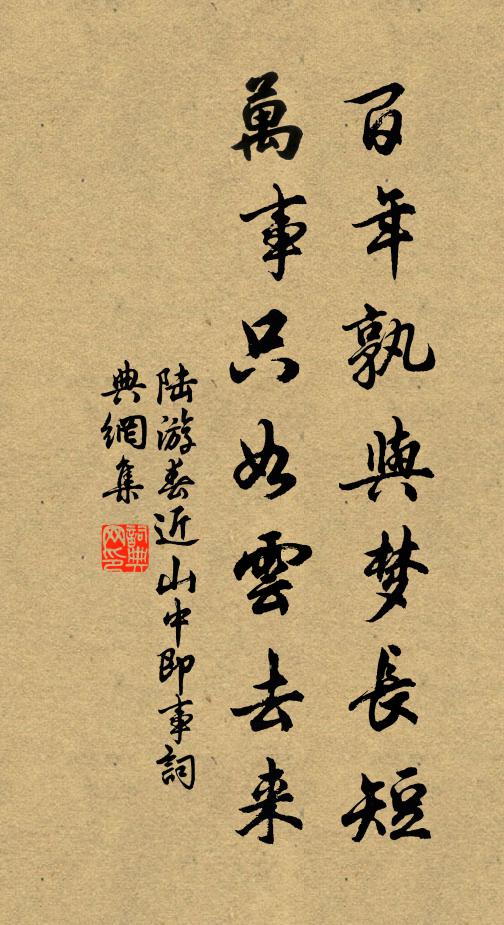 百年孰與梦長短
萬事只如雲去来
陆游春近山中即事詞
典網集
詞典网印